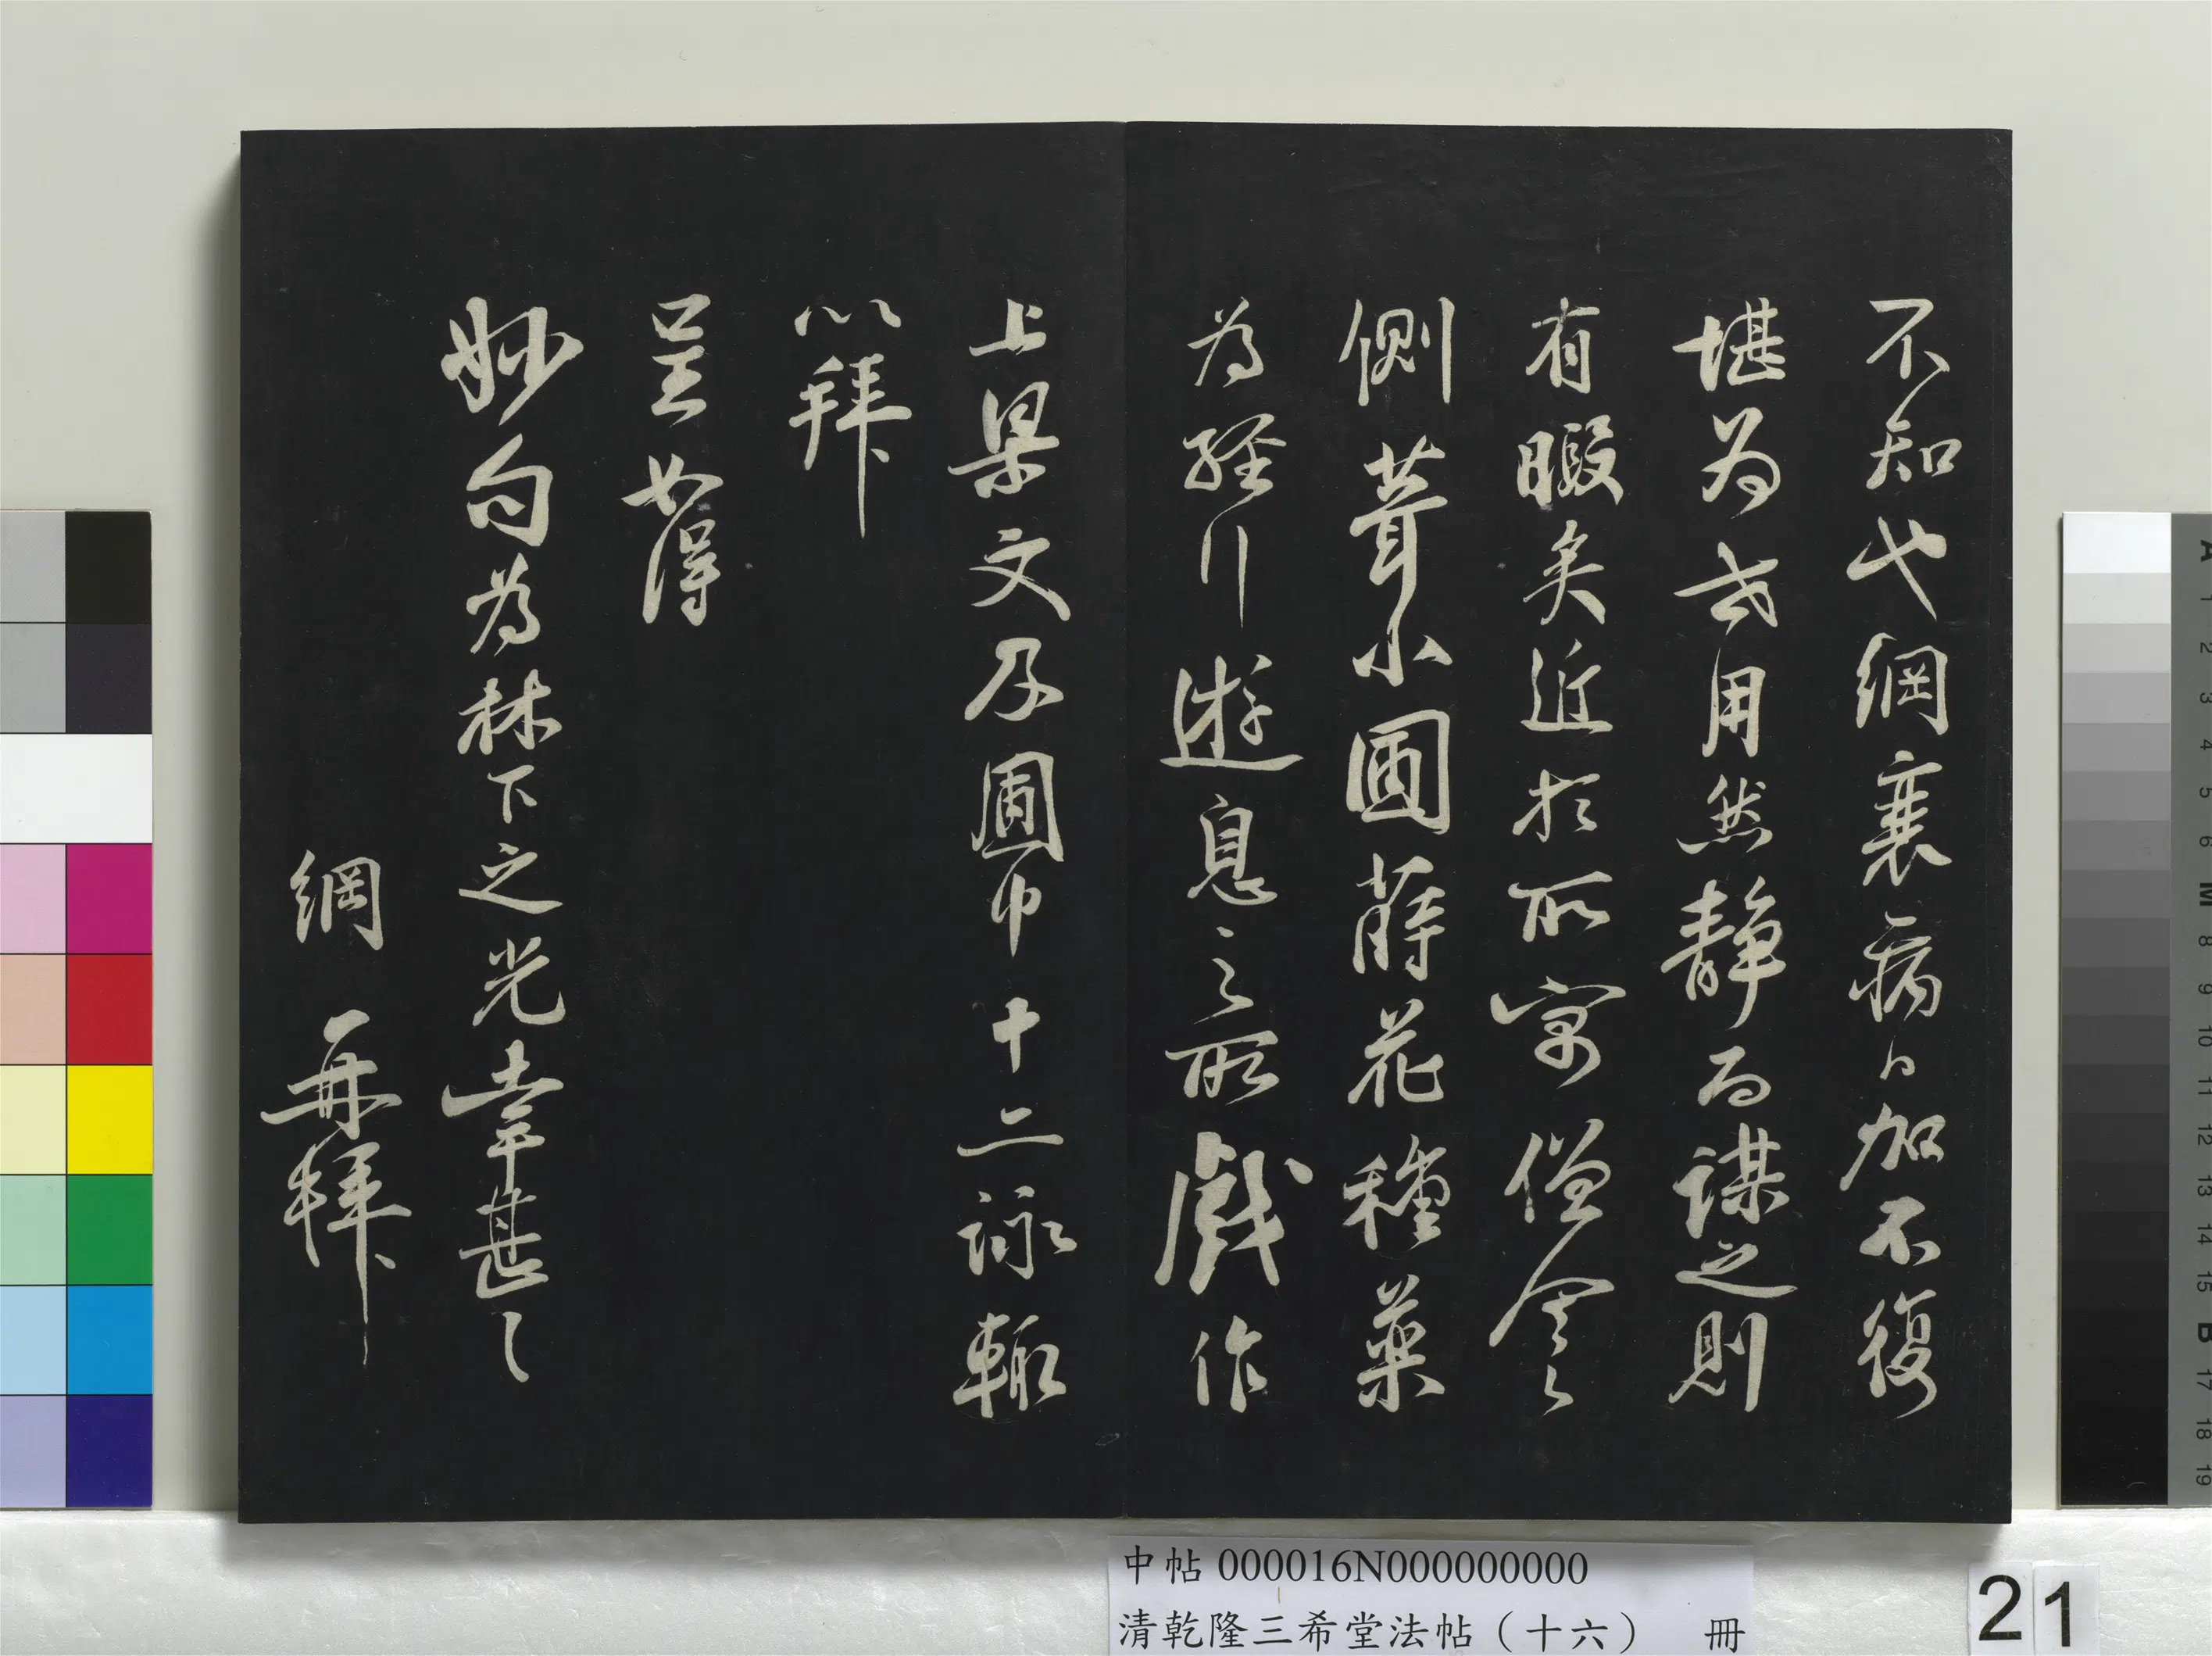 不知也綱衰病日加不復
堪為世用然静而謀之則
有暇矣近於所寓僧舍之
側葺小圃蒔花種藥
為經行遊息之所戲作
上梁文及圃中十二詠輒
以拜
呈如得
妙句為林下之光幸甚〻
綱 再拜
中帖 000016N000000000
清乾隆三希堂法帖（十六） 冊
21
A 1 2 3 4 5 6 M 8 9 10 11 12 13 14 15 B 17 18 19